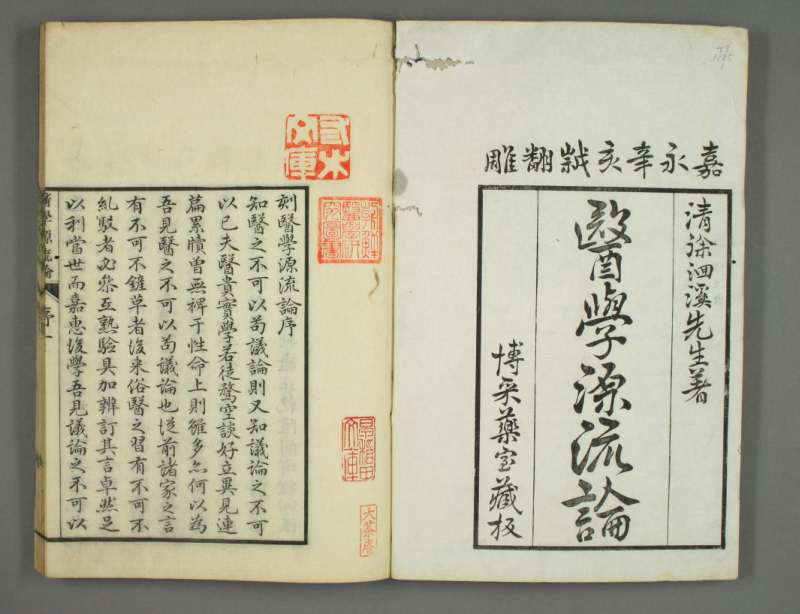 嘉永辛亥䥴翻雕
清徐洄溪先生著
醫學源流論
博采藥室藏板
刻醫學源流論序
知醫之不可以苟議論則又知議論之不可
以已夫醫貴實學若徒騖空談好立異見連
篇累牘曾無裨于性命上則雖多亦何以為
吾見醫之不可以苟議論也從前諸家之言
有不可不鏟草者後來俗醫之習有不可不
糺駁者必參互熟驗具加辨訂其言卓然足
以利當世而嘉惠後學吾見議論之不可以
醫學源流論
序
一
大茶庵